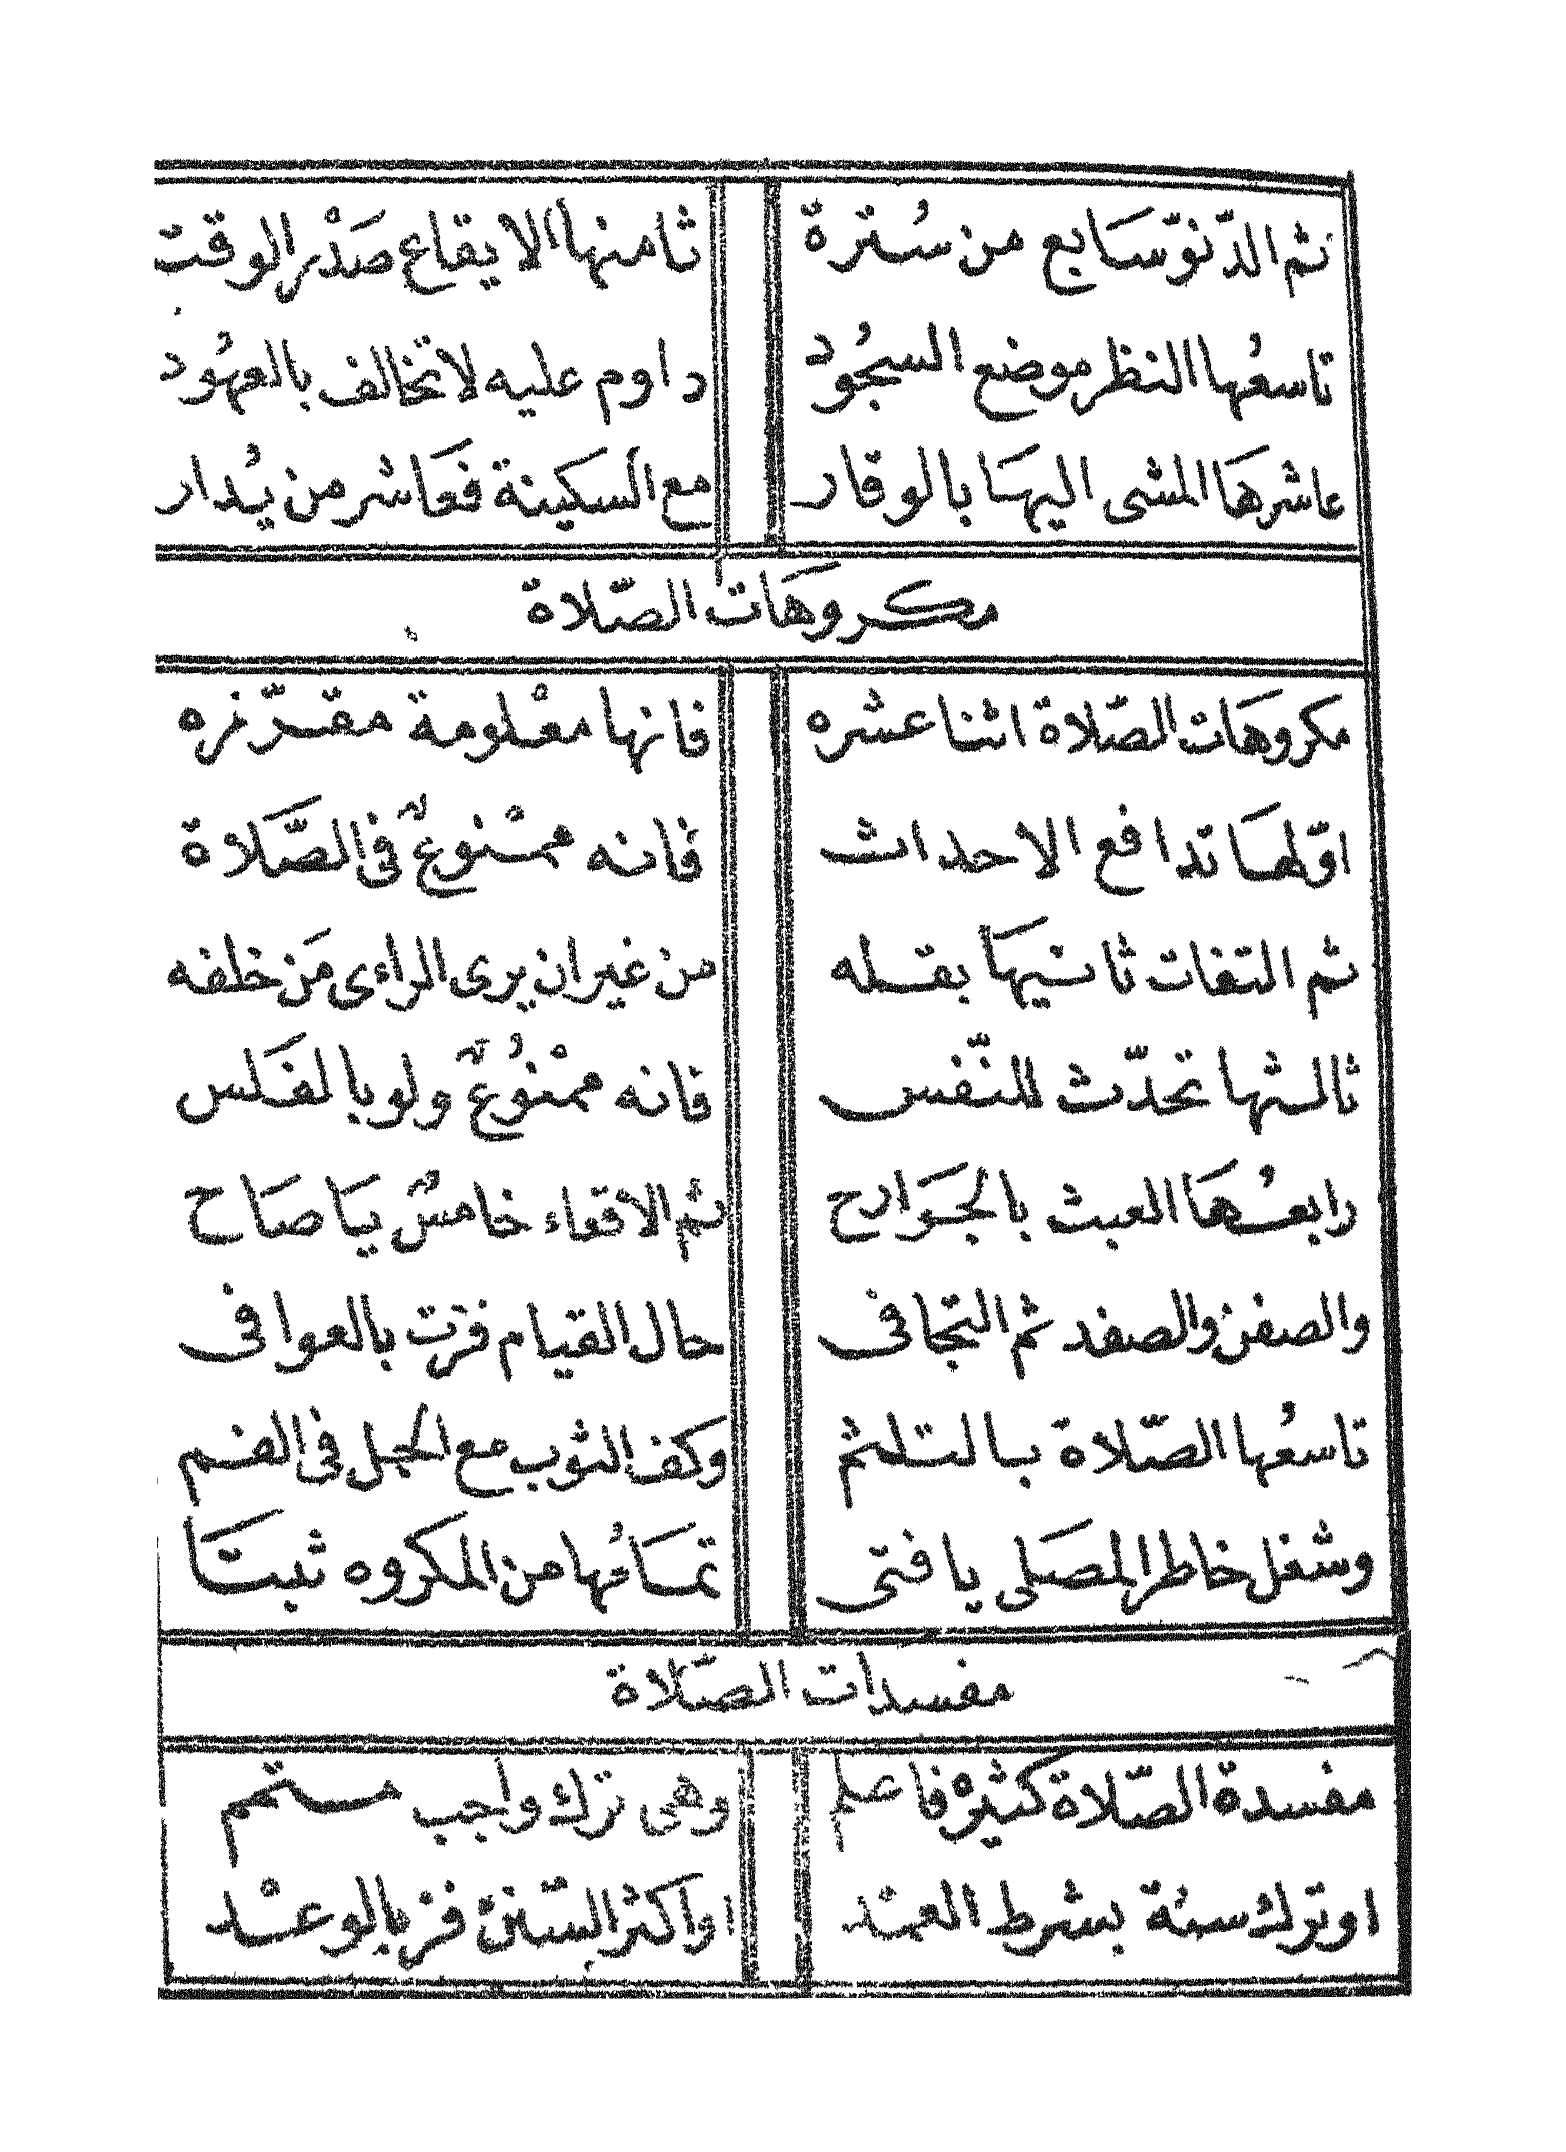 ثم الدّنوّ سَابع من سُترة ثامنها الايقاع صَدْر الوقت
تاسعُها النظر موضع السجُود داوم عليه لا تخالف بالعهُود
عاشرهَا المشى اليهَا بالوقار مع السكينة فعَاشر من يُدار
مكروهَات الصّلاة
مكروهَات الصّلاة اثنا عشره فانها معْلومة مقرّره
اوّلهَا تدافع الاحداث فانه ممْنوعٌ فى الصَّلاة
ثم التفات ثانيهَا بقله من غير ان يرى الراءى مَن خلفه
ثالثها تحدّث للنّفس فانه ممْنُوعٌ ولو بالفَلس
رابعُهَا العبث بالجَوارح ثم الاقعاء خامسٌ يَا صَاح
والصفن والصفد ثم التجافى حال القيام فزت بالعوافى
تاسعُها الصّلاة بالتلثم وكف الثوب مع الجعل فى الفم
وشغل خاطر المصَلى يا فتى تمَامُها من المكروه ثبتَا
مفسدات الصّلاة
مفسدة الصّلاة كثيرة فاعلم وهى ترك واجب مستمم
او ترك سنة بشرط العمْد او اكثر السّنن فز بالوعْد